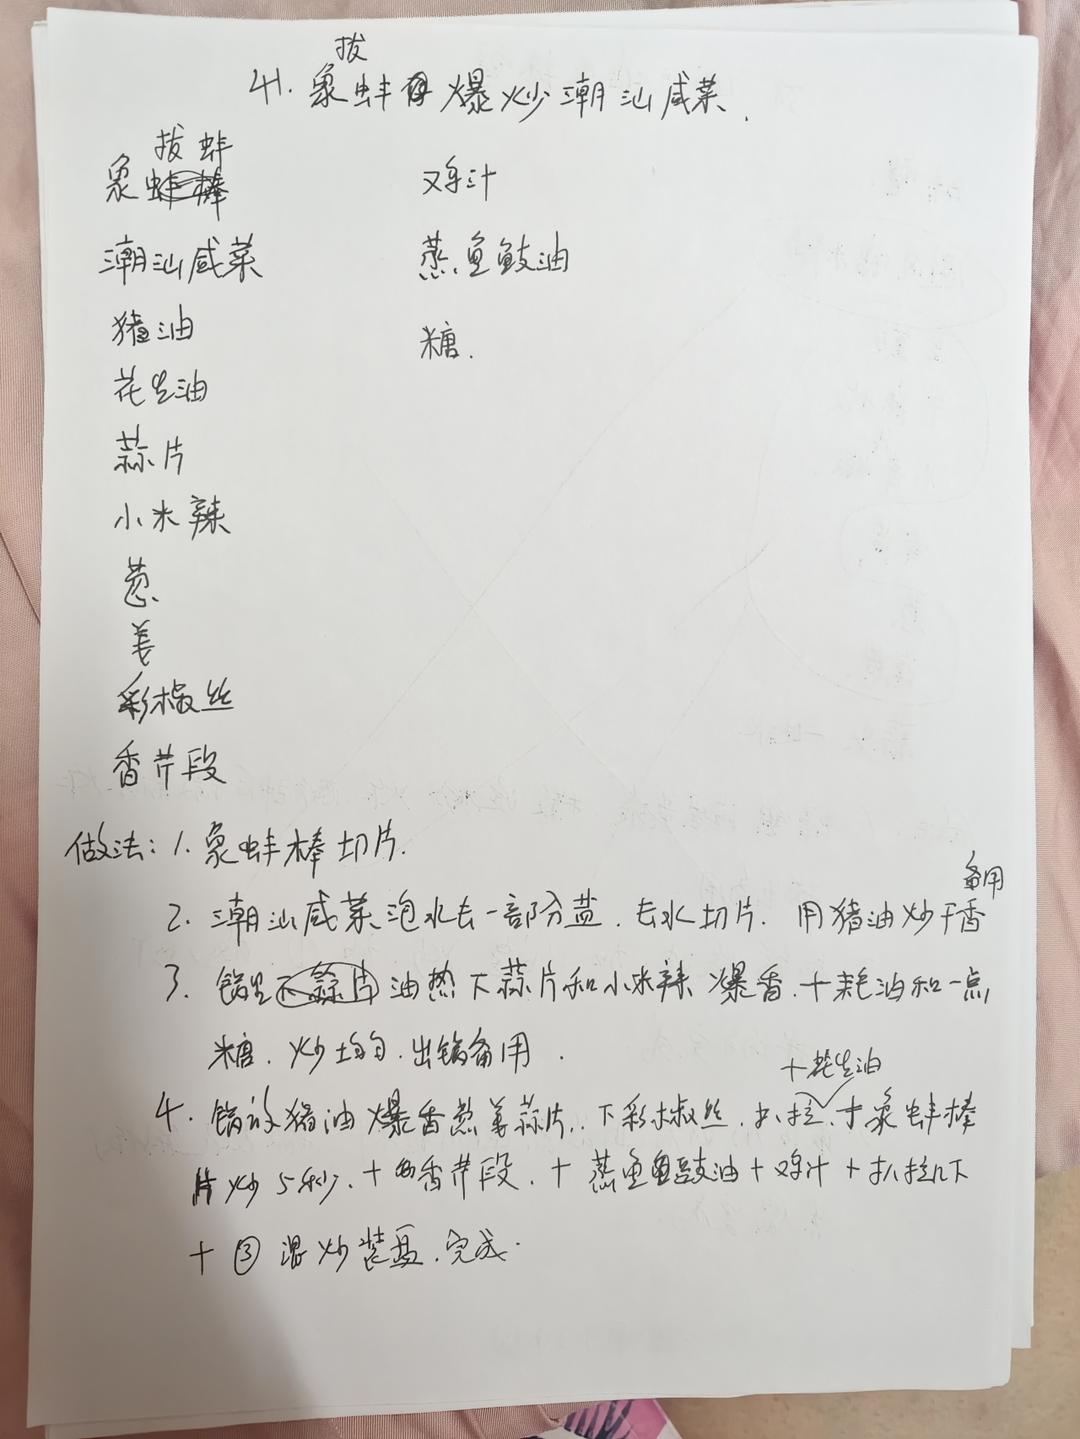 41. 象拔蚌爆炒潮汕咸菜.
象拔蚌
潮汕咸菜
猪油
花生油
蒜片
小米辣
葱
姜
彩椒丝
香芹段
鸡汁
蒸鱼豉油
糖.
做法: 1. 象蚌棒切片.
2. 潮汕咸菜泡水去一部分盐. 去水切片. 用猪油炒干香备用
3. 锅里油热下蒜片和小米辣爆香. 十耗油和一点
糖. 炒均匀. 出锅备用.
4. 锅放猪油爆香葱姜蒜片. 下彩椒丝. 扒拉. +花生油 十象蚌棒
片炒5秒. 十香芹段. 十蒸鱼豉油+鸡汁+扒拉几下
十③混炒装盘. 完成.